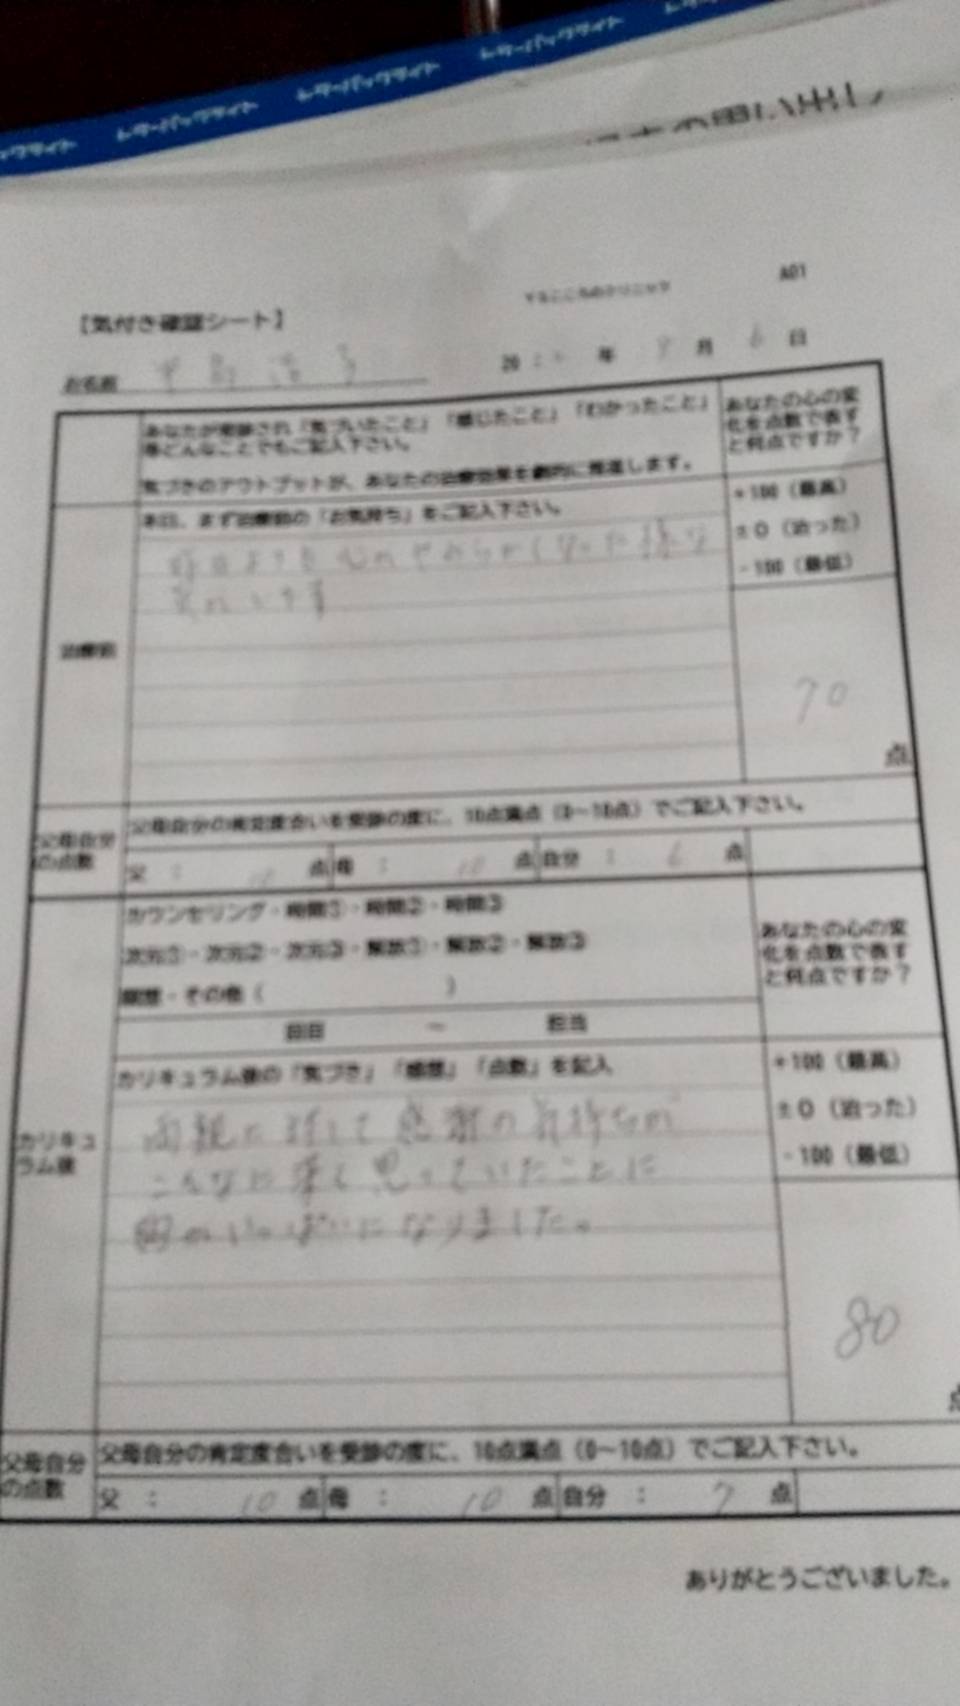 レターパックライト レターパックライト レターパックライト
の思い出し
A01
【気付き確認シート】
お名前
20 年 9 月 6 日
あなたが受診され「気づいたこと」「感じたこと」「わかったこと」
等どんなことでもご記入下さい。
気づきのアウトプットが、あなたの治療効果を劇的に推進します。
あなたの心の変
化を点数で表す
と何点ですか？
治療前
本日、まず治療前の「お気持ち」をご記入下さい。
+100（最高）
±0（治った）
-100（最低）
70
点
父母自分
の点数
父母自分の肯定度合いを受診の度に、10点満点（0～10点）でご記入下さい。
父 ： 10 点 母 ： 10 点 自分 ： 6 点
カウンセリング・時間①・時間②・時間③
次元①・次元②・次元③・解放①・解放②・解放③
瞑想・その他（ ）
回目 ～ 担当
あなたの心の変
化を点数で表す
と何点ですか？
カリキュ
ラム後
カリキュラム後の「気づき」「感想」「点数」を記入
+100（最高）
±0（治った）
-100（最低）
両親に対して感謝の気持ちが
こんなに深く思っていたことに
いっぱいになりました。
80
点
父母自分
の点数
父母自分の肯定度合いを受診の度に、10点満点（0～10点）でご記入下さい。
父 ： 10 点 母 ： 10 点 自分 ： 7 点
ありがとうございました。